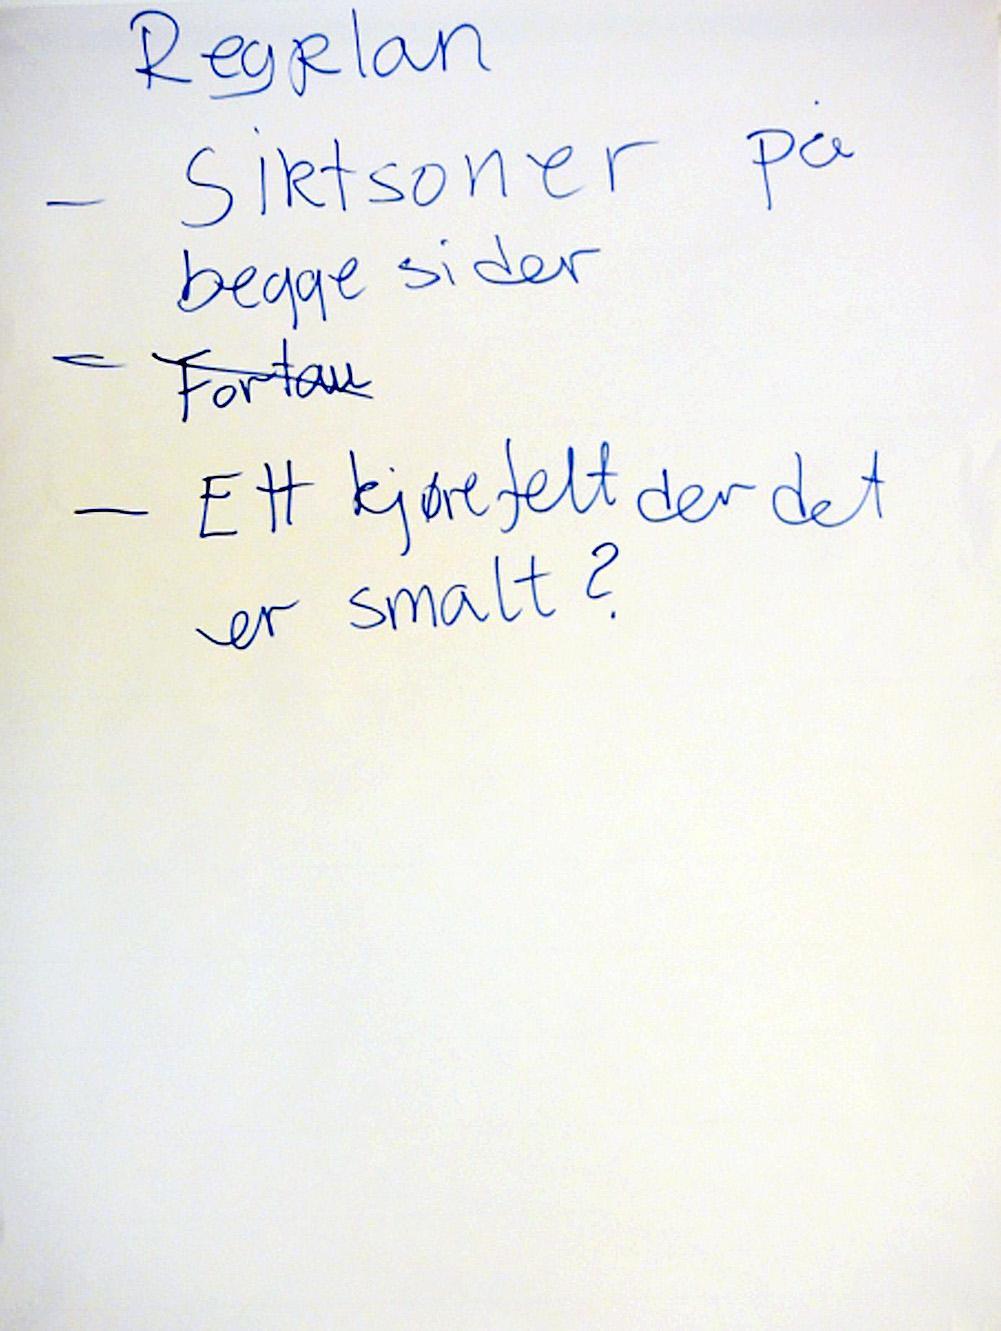 Regplan
- Siktsoner på
begge sider
- Fortau
- Ett kjørefelt der det
er smalt?